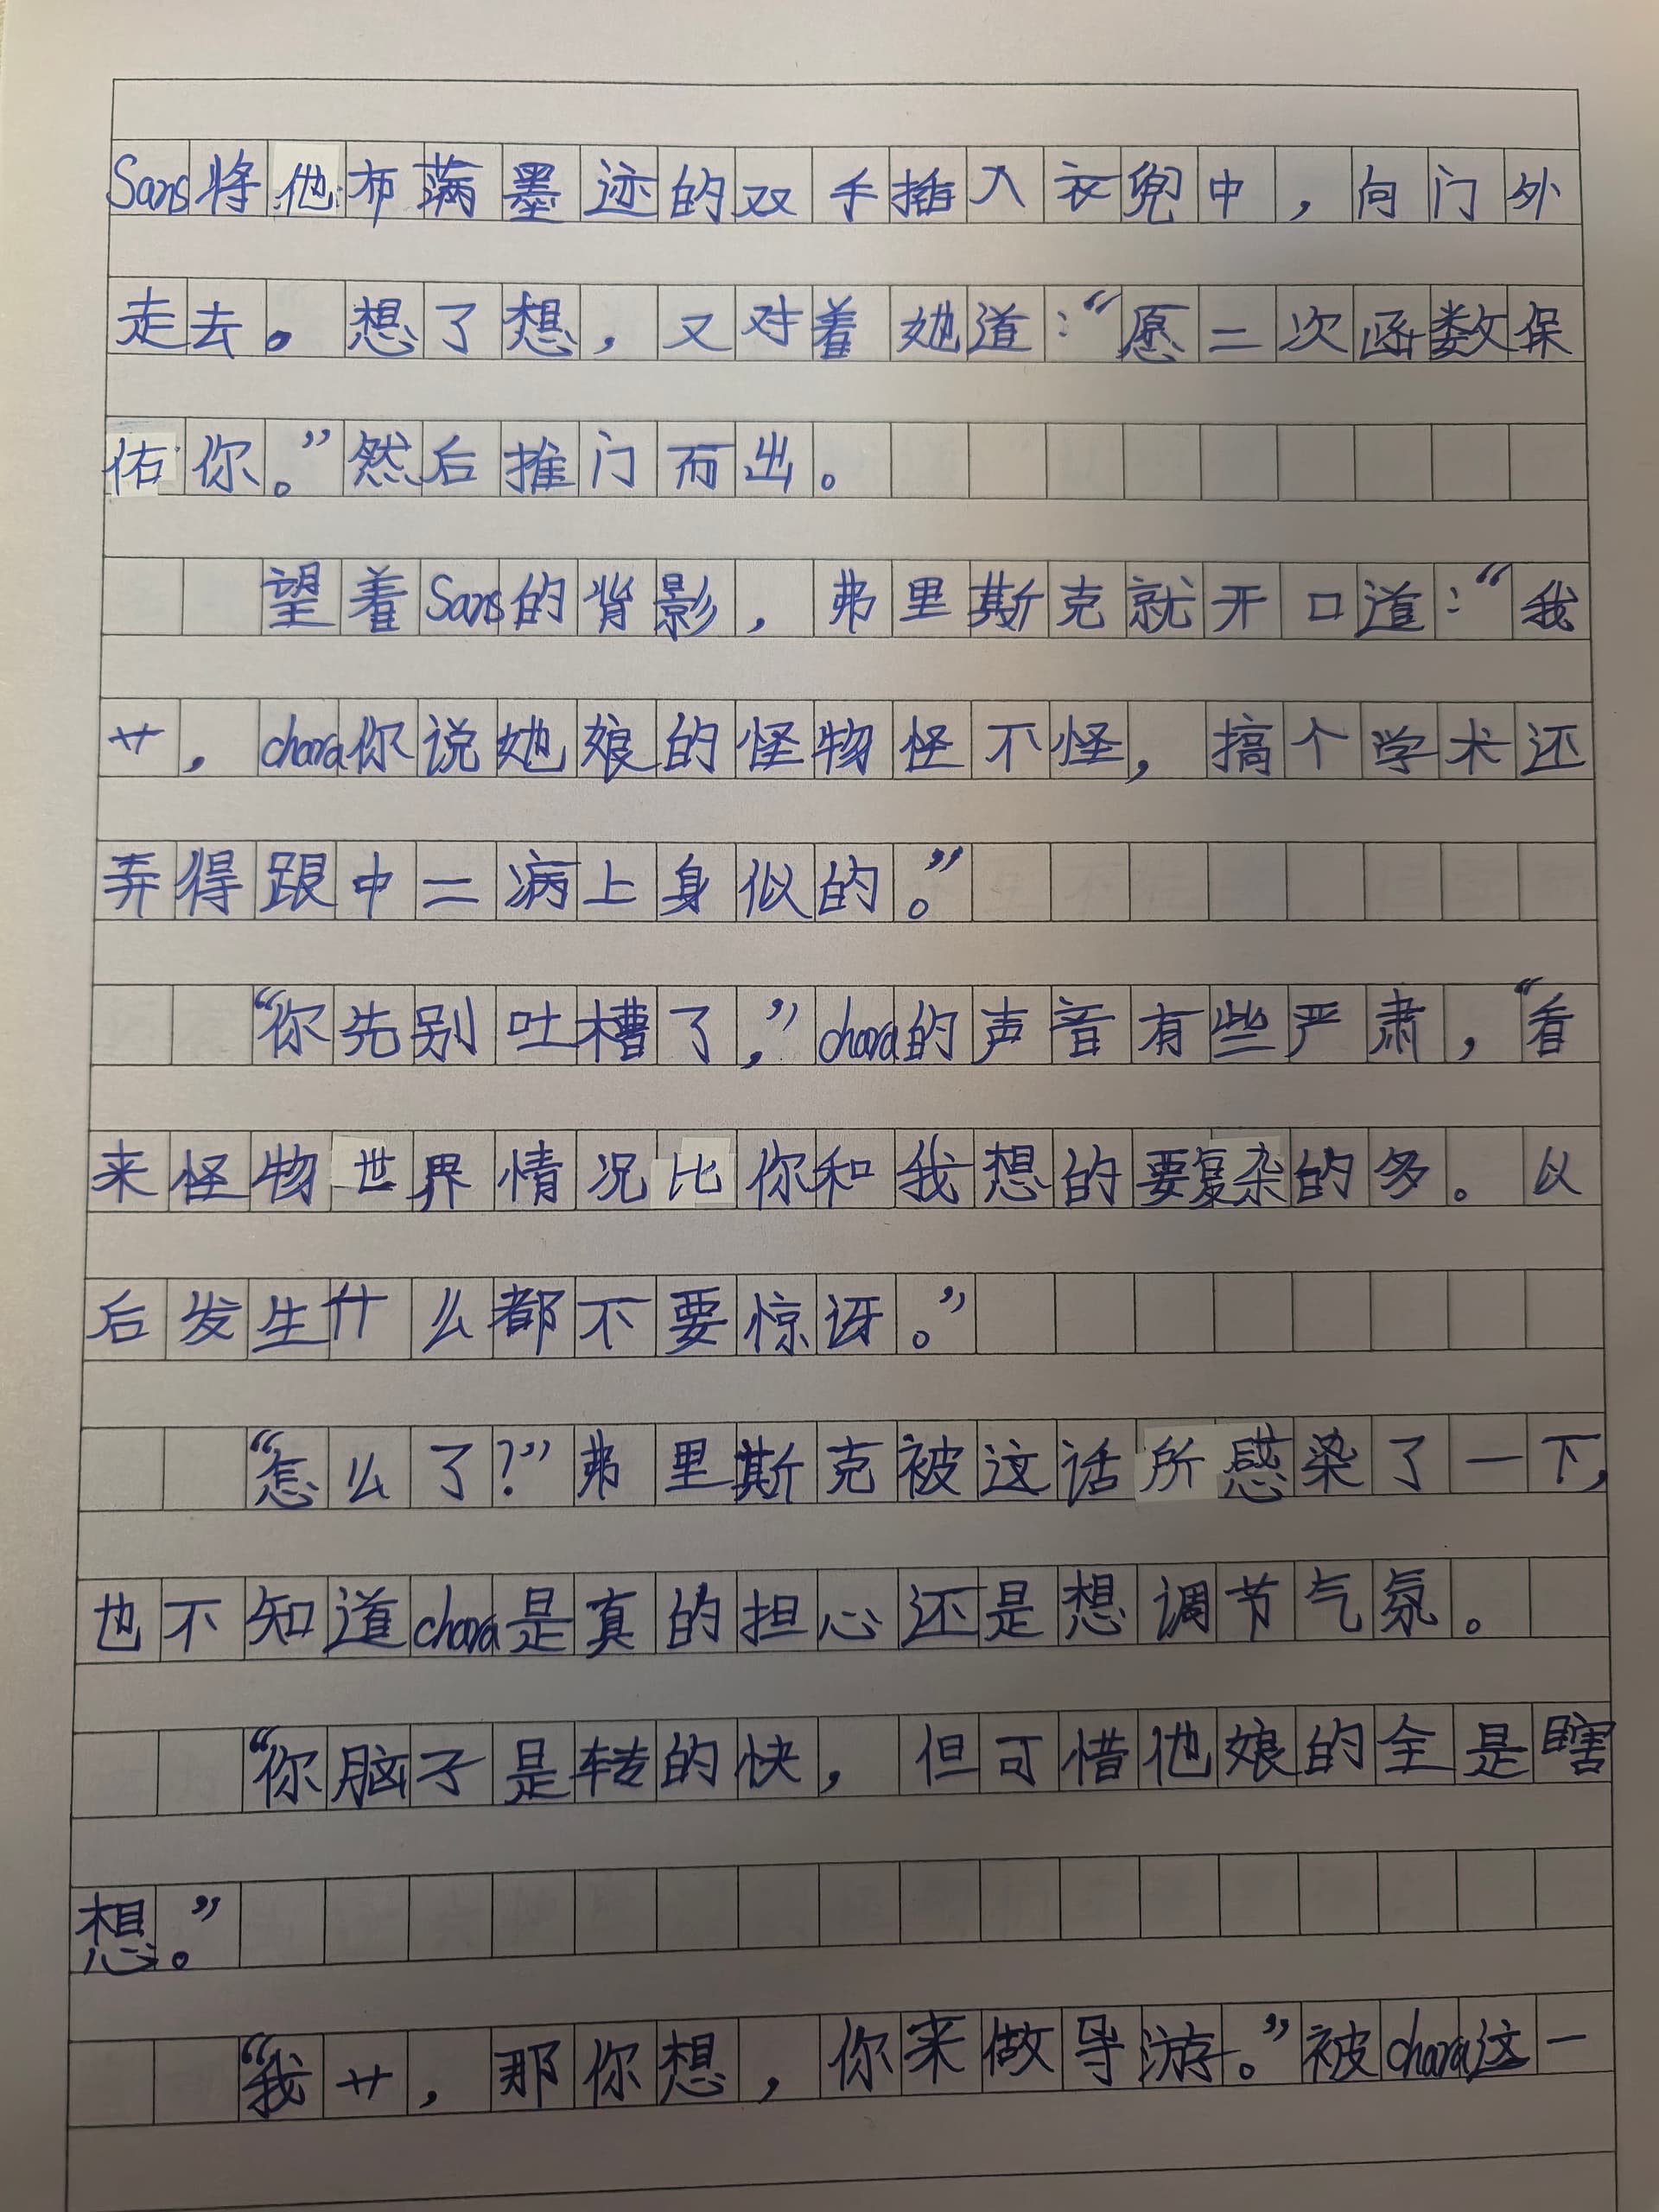 Sans将他布满墨迹的双手插入衣兜中，向门外
走去。想了想，又对着她道：“愿二次函数保
佑你。”然后推门而出。
望着Sans的背影，弗里斯克就开口道：“我
艹，chara你说她娘的怪物怪不怪，搞个学术还
弄得跟中二病上身似的。”
“你先别吐槽了，”chara的声音有些严肃，“看
来怪物世界情况比你和我想的要复杂的多。以
后发生什么都不要惊讶。”
“怎么了？”弗里斯克被这话所感染了一下，
也不知道chara是真的担心还是想调节气氛。
“你脑子是转的快，但可惜他娘的全是瞎
想。”
“我艹，那你想，你来做导游。”被chara这一